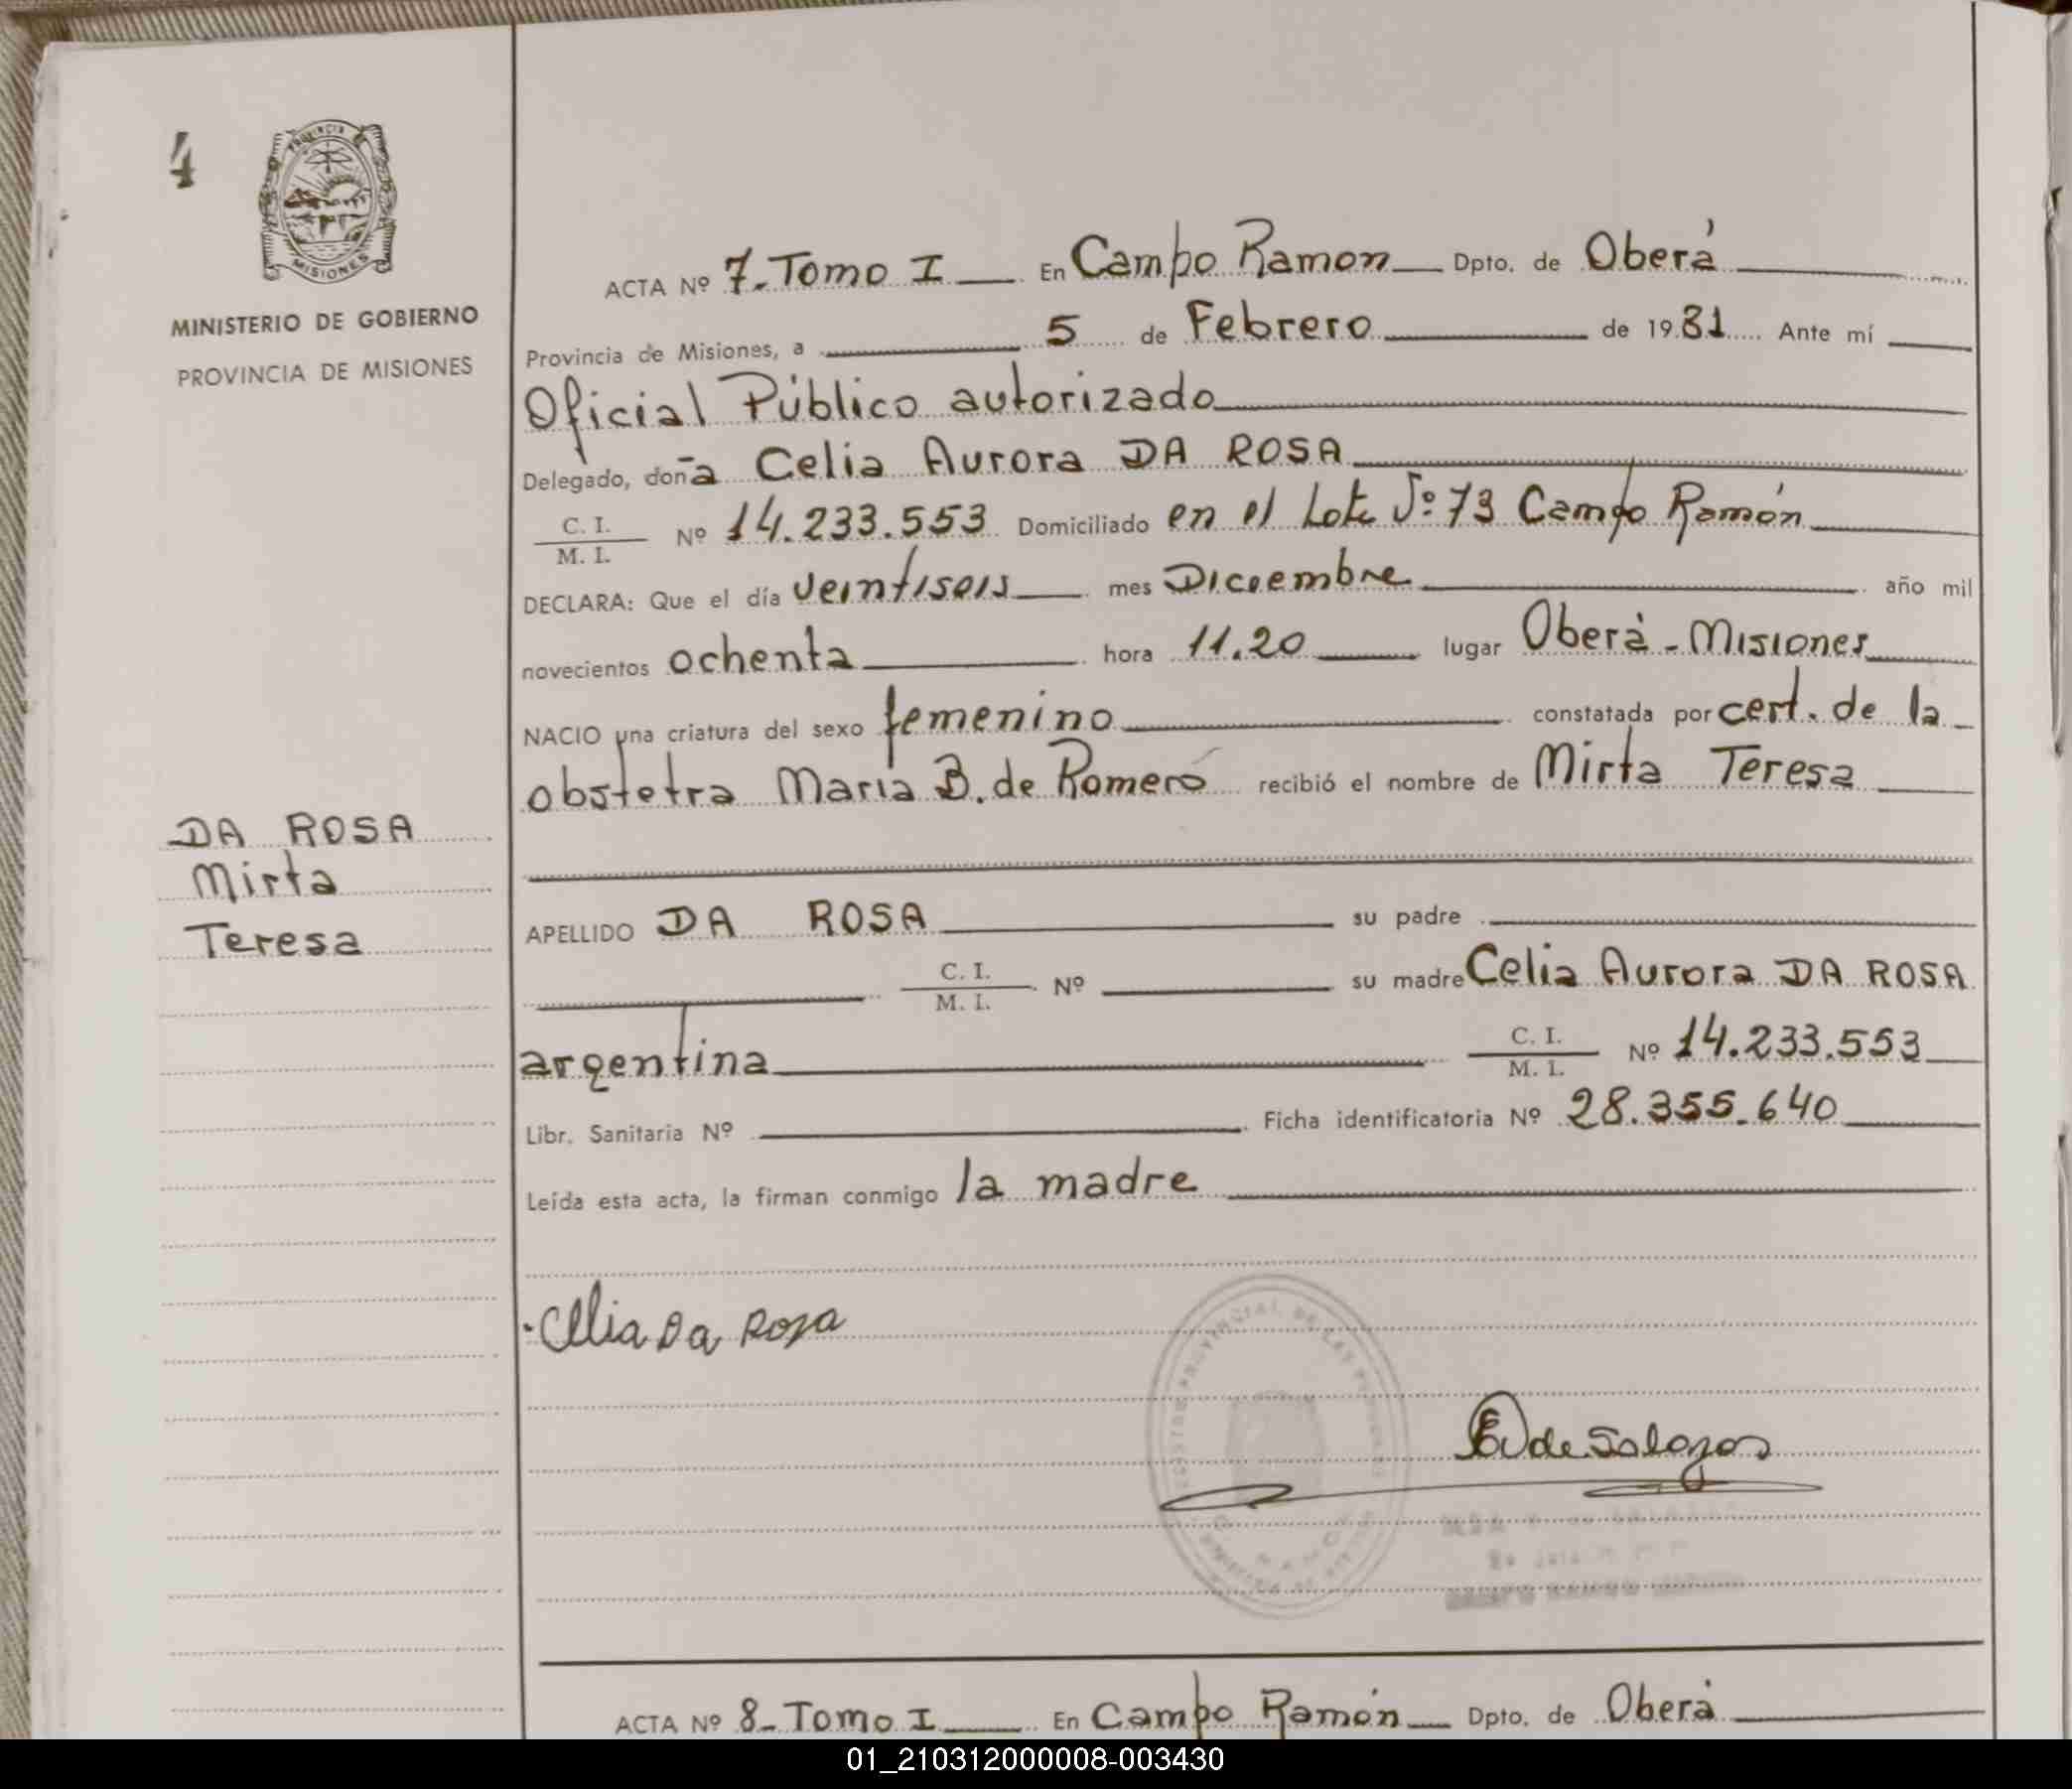 4
PROVINCIA
MISIONES
MINISTERIO DE GOBIERNO
PROVINCIA DE MISIONES
DA ROSA
Mirta
Teresa
ACTA Nº 7. Tomo I En Campo Ramon Dpto. de Oberá
Provincia de Misiones, a 5 de Febrero de 1981 Ante mí
Oficial Público autorizado
Delegado, doña Celia Aurora DA ROSA
C. I. / M. I. Nº 14.233.553 Domiciliado en el Lote Nº 73 Campo Ramón
DECLARA: Que el día veintiseis mes Diciembre año mil
novecientos ochenta hora 11.20 lugar Oberá - Misiones
NACIO una criatura del sexo femenino constatada por cert. de la
obstetra Maria B. de Romero recibió el nombre de Mirta Teresa
APELLIDO DA ROSA su padre
C. I. / M. I. Nº su madre Celia Aurora DA ROSA
argentina C. I. / M. I. Nº 14.233.553
Libr. Sanitaria Nº Ficha identificatoria Nº 28.355.640
Leída esta acta, la firman conmigo la madre
Celia Da Rosa
ACTA Nº 8- Tomo I En Campo Ramón Dpto. de Oberá
01_210312000008-003430